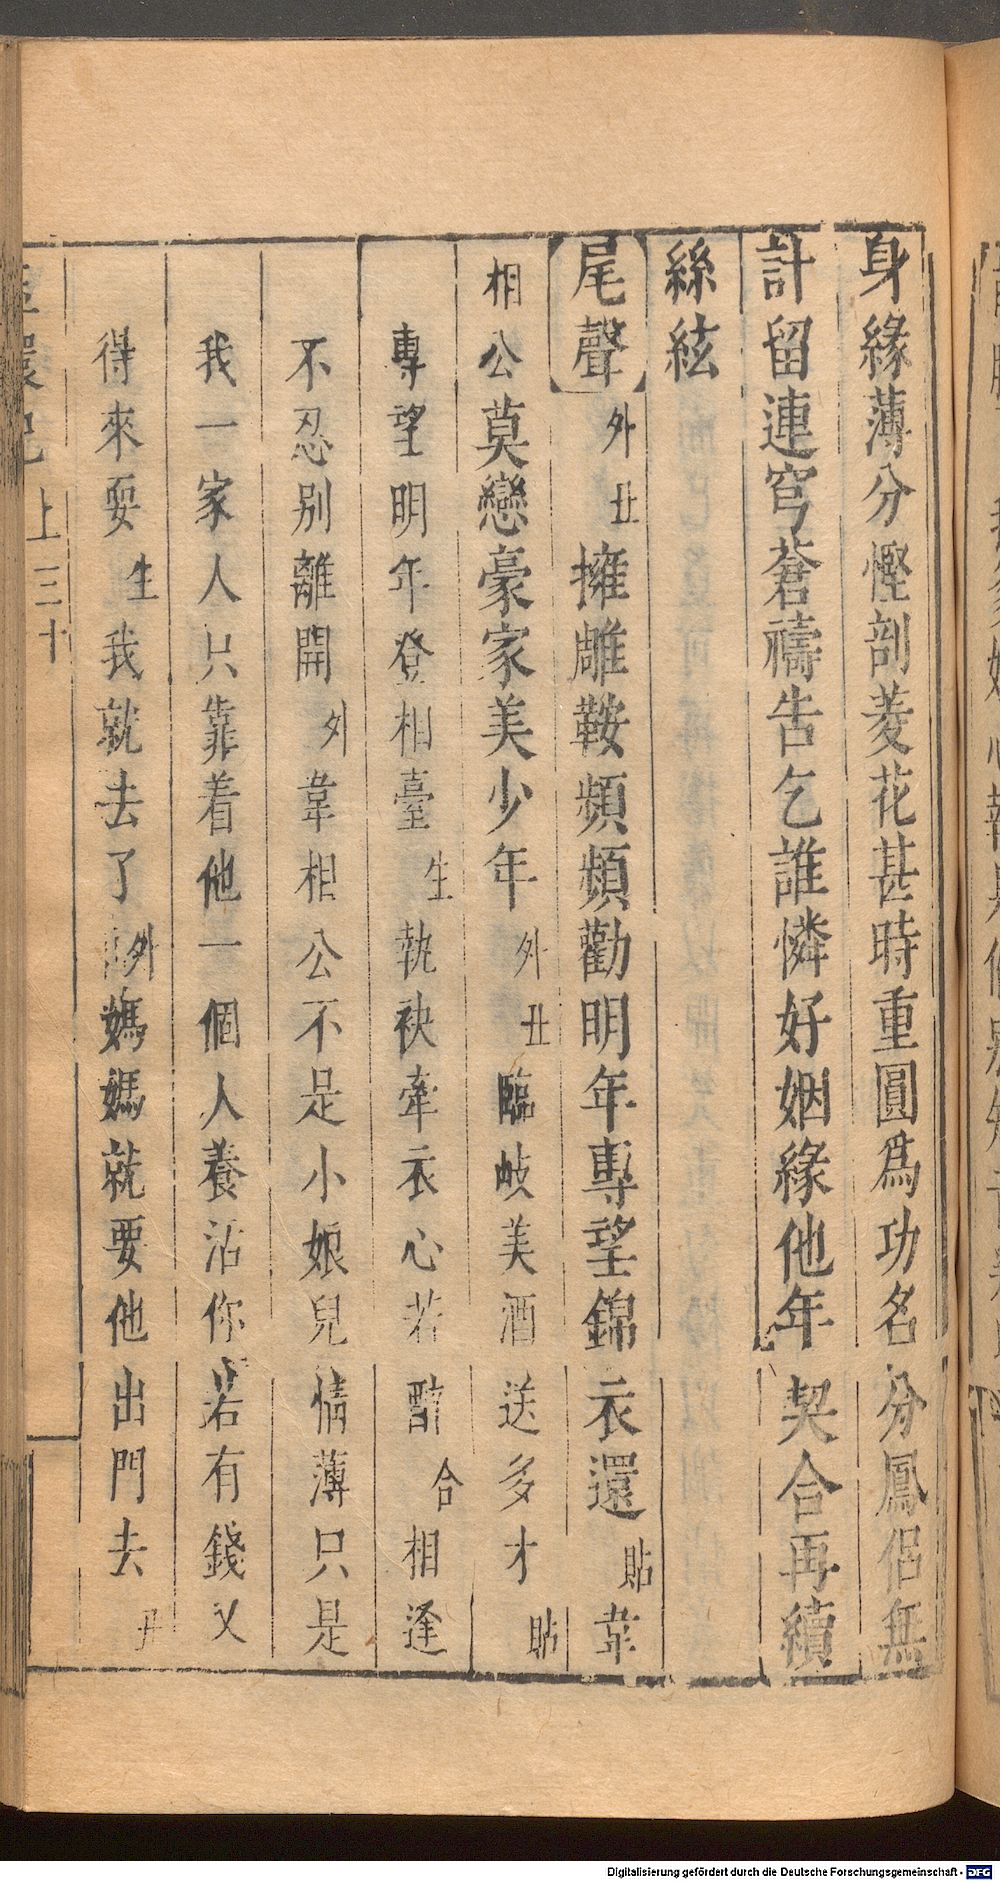 身緣薄分慳剖菱花甚時重圓爲功名分鳳侶無
計留連穹蒼禱告乞誰憐好姻緣他年契合再續
絲絃
【尾聲】外丑擁雕鞍頻頻勸明年專望錦衣還貼韋
相公莫戀豪家美少年外丑臨岐美酒送多才貼
專望明年登相臺生執袂牽衣心若醉合相逢
不忍別離開外韋相公不是小娘兒情薄只是
我一家人只靠着他一個人養活你若有錢又
得來耍生我就去了外媽媽就要他出門去丑
玉環記 上 三十
Digitalisierung gefördert durch die Deutsche Forschungsgemeinschaft - DFG